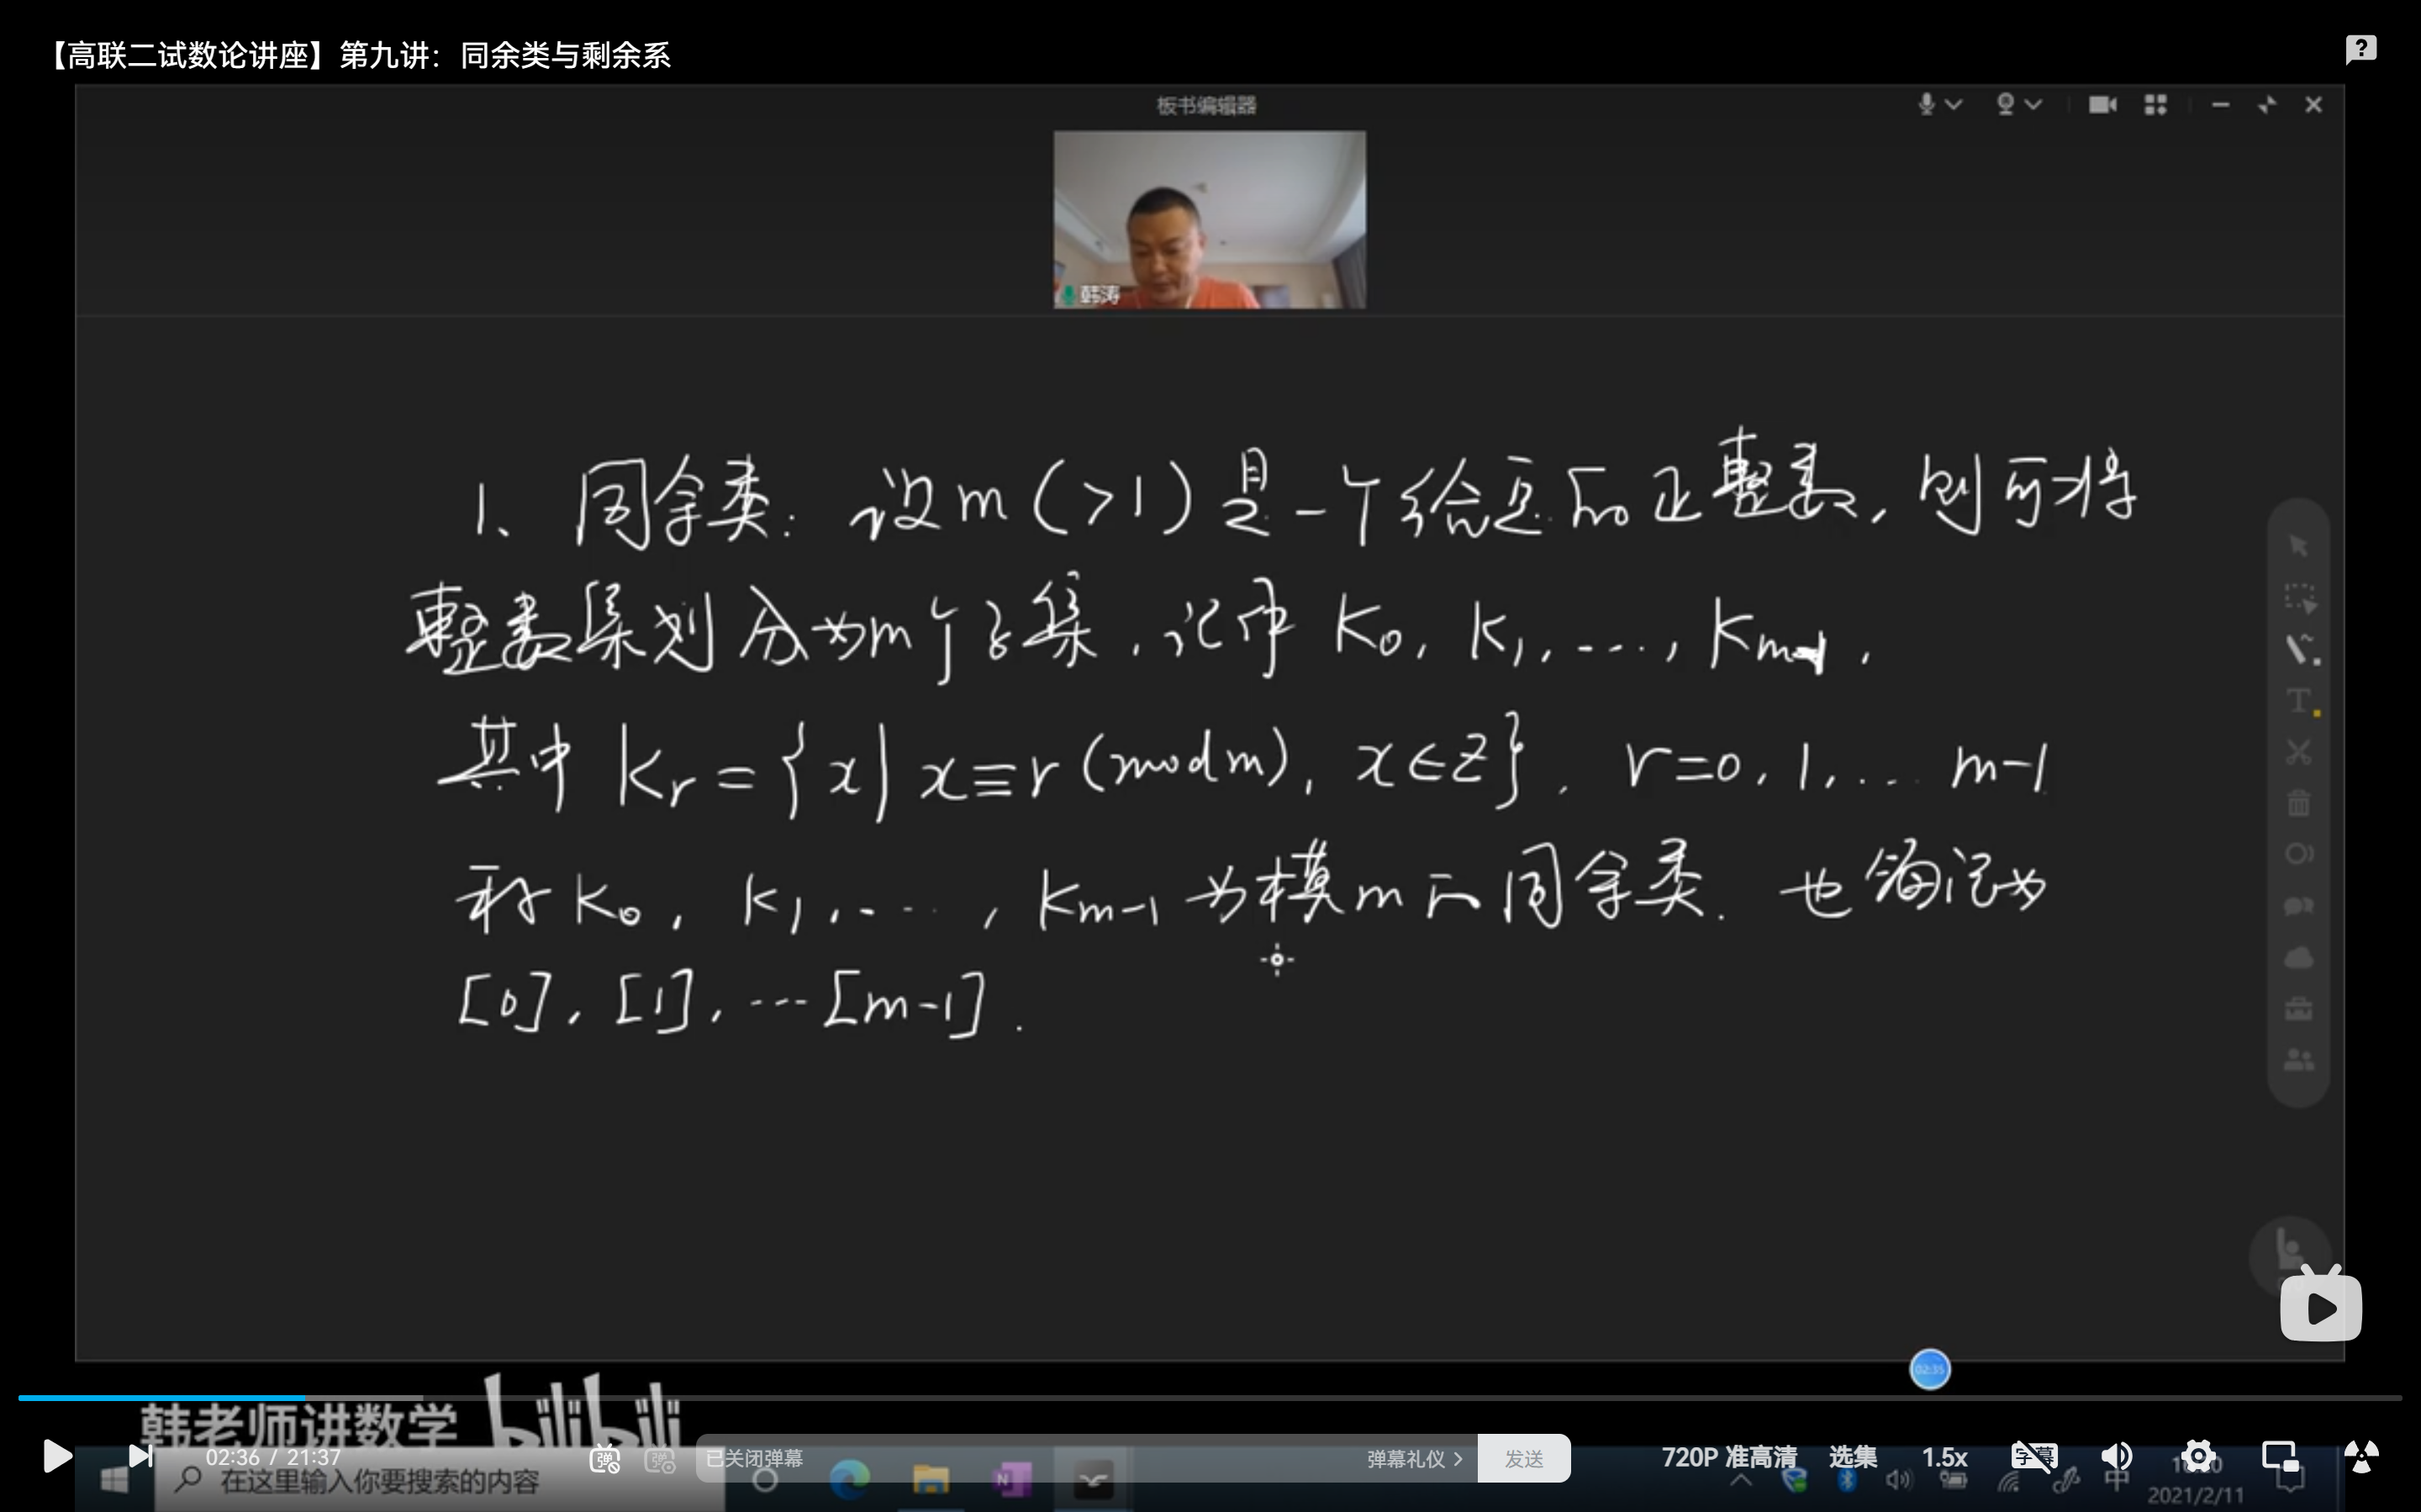 【高联二试数论讲座】第九讲：同余类与剩余系
板书编辑器
韩涛
1、同余类：设m(>1)是一个给定的正整数，则可将
整数集划分为m个子集，记作 K₀, K₁, ..., Kₘ₋₁,
其中 Kᵣ={x| x≡r (mod m), x∈Z}, r=0, 1, ... m-1
称 K₀, K₁, ..., Kₘ₋₁ 为模m的同余类. 也简记为
[0], [1], ...[m-1].
02:35
韩老师讲数学 bilibili
02:36 / 21:37
已关闭弹幕
弹幕礼仪 >
发送
720P 准高清
选集
1.5x
在这里输入你要搜索的内容
中
2021/2/11